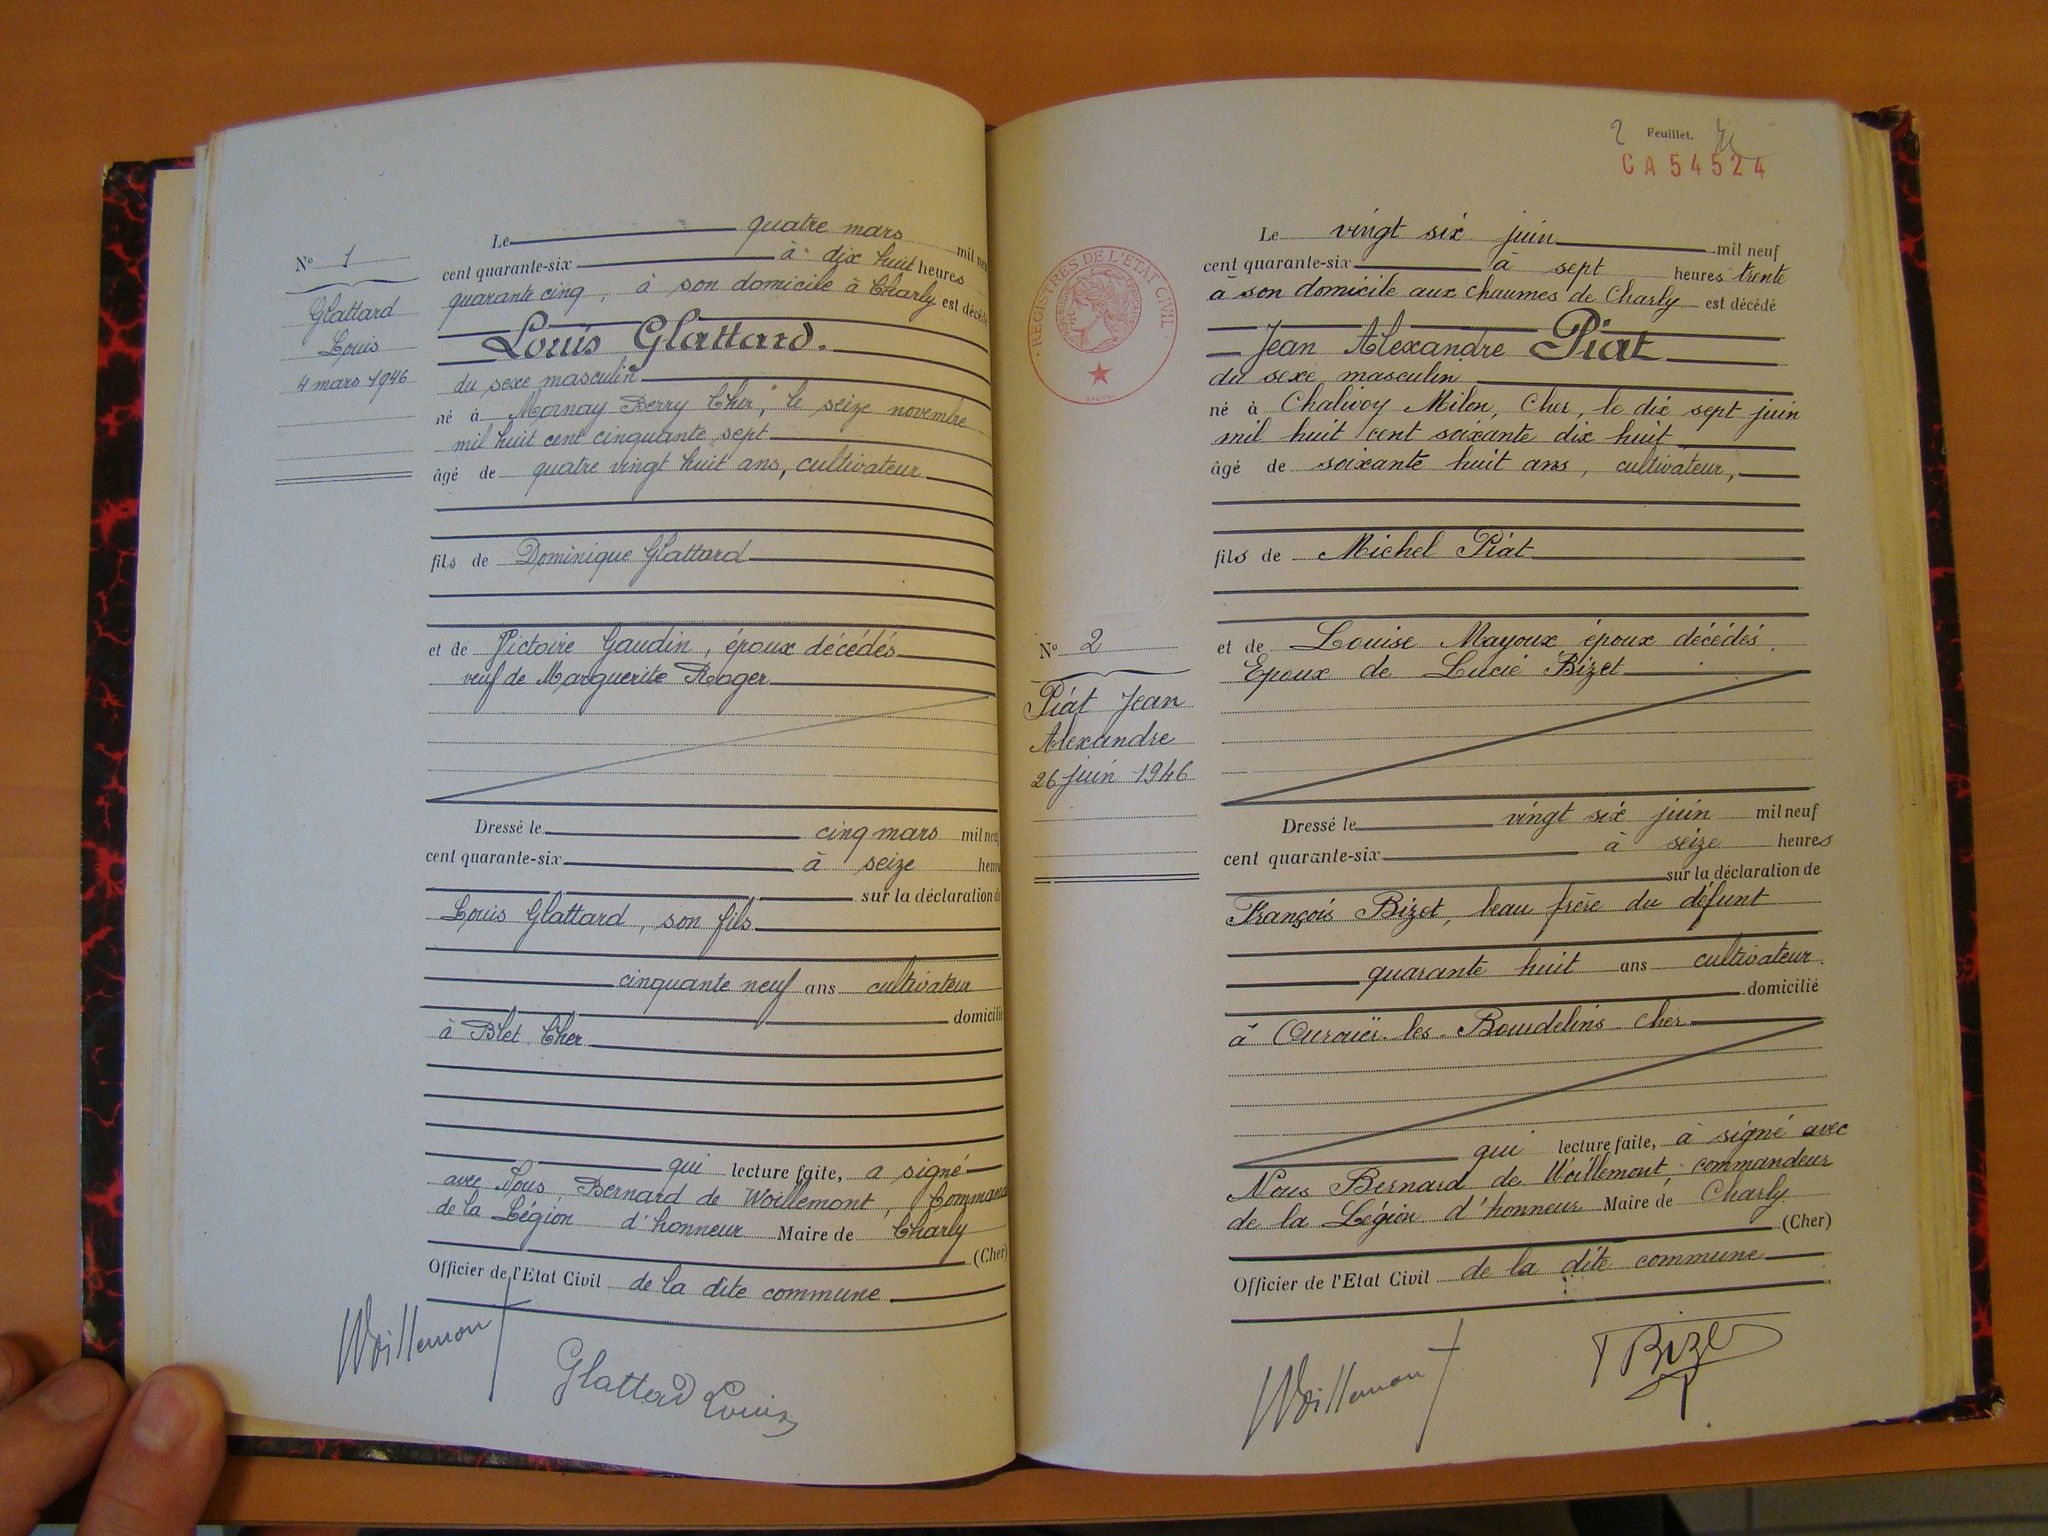 N° 1
Glattard
Louis
4 mars 1946
Le quatre mars mil neuf
cent quarante-six à dix huit heures
quarante cinq, à son domicile à Charly est décédé
Louis Glattard.
du sexe masculin
né à Mornay Berry Cher, le seize novembre
mil huit cent cinquante sept
âgé de quatre vingt huit ans, cultivateur
fils de Dominique Glattard
et de Victoire Gaudin, époux décédés
veuf de Marguerite Roger
Dressé le cinq mars mil neuf
cent quarante-six à seize heures
sur la déclaration de
Louis Glattard, son fils
cinquante neuf ans cultivateur
domicilié
à Blet Cher
qui lecture faite, a signé
avec Nous, Bernard de Woillemont, Command
de la Légion d'honneur Maire de Charly
(Cher)
Officier de l'Etat Civil de la dite commune
Woillemont
Glattard Louis
2 Feuillet.
CA 54524
REGISTRES DE L'ETAT CIVIL
Le vingt six juin mil neuf
cent quarante-six à sept heures trente
à son domicile aux chaumes de Charly est décédé
Jean Alexandre Piat
du sexe masculin
né à Chalivoy Milon, Cher, le dix sept juin
mil huit cent soixante dix huit
âgé de soixante huit ans, cultivateur,
fils de Michel Piat
N° 2
Piat Jean
Alexandre
26 juin 1946
et de Louise Mayoux époux décédés.
Epoux de Lucie Bizet
Dressé le vingt six juin mil neuf
cent quarante-six à seize heures
sur la déclaration de
François Bizet, beau frère du défunt
quarante huit ans cultivateur.
domicilié
à Ourouër-les-Bourdelins Cher
qui lecture faite, à signé avec
Nous Bernard de Woillemont, commandeur
de la Légion d'honneur Maire de Charly
(Cher)
Officier de l'Etat Civil de la dite commune
Woillemont
Bizet